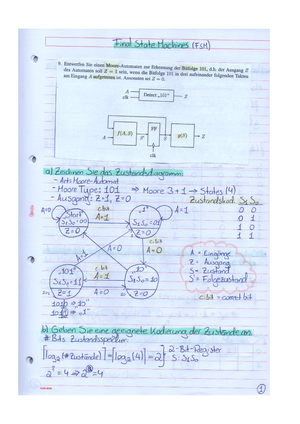 Final State Machines (FSM)
9. Entwerfen Sie einen Moore-Automaten zur Erkennung der Bitfolge 101, d.h. der Ausgang Z
des Automaten soll Z = 1 sein, wenn die Bitfolge 101 in drei aufeinander folgenden Takten
am Eingang A aufgetreten ist. Ansonsten sei Z = 0.
A
clk
Detect „101"
Z
A
f(A,S)
S'
FF
S
g(S)
Z
clk
a) Zeichnen Sie das Zustandsdiagramm:
- Moore Type: 101 ⇒ Moore 3+1 → States (4)
- Ausgang: Z=1, Z=0
Zustandskod. S1 S0
0 0
0 1
1 0
1 1
A=0
Start
S1S0=00
Z=0
c.bit
A=1
"1"
S1S0=01
Z=0
A=1
A=0
A=0
c.bit
"101"
S1S0=11
Z=1
c.bit
A=1
A=0
"10"
S1S0=10
Z=0
A = Eingänge
Z = Ausgang
S = Zustand
S' = Folgezustand
c.bit = correct bit
b) Geben Sie eine geeignete Kodierung der Zustände an.
# Bits Zustandsspeicher:
⌈log2(#Zustände)⌉=⌈log2(4)⌉=2
2-Bit-Register
S: S1S0
1